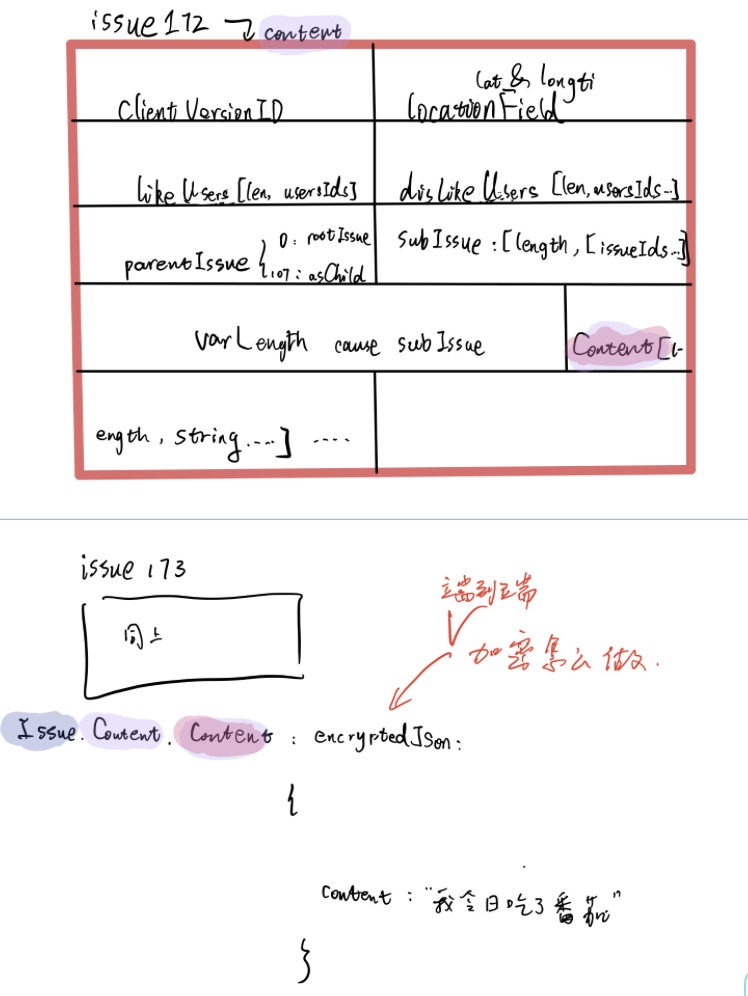 issue 172 content
Client VersionID
lat & longti
locationField
like Users [len, usersIds]
dislike Users [len, usersIds...]
parentIssue { 0: rootIssue
107: asChild
subIssue : [length, [issueIds...]]
varLength cause subIssue
Content [l-
ength, string.....] ....
issue 173
同上
端到端
加密怎么做.
Issue. Content. Content : encryptedJson:
{
content : "我今日吃了番茄"
}